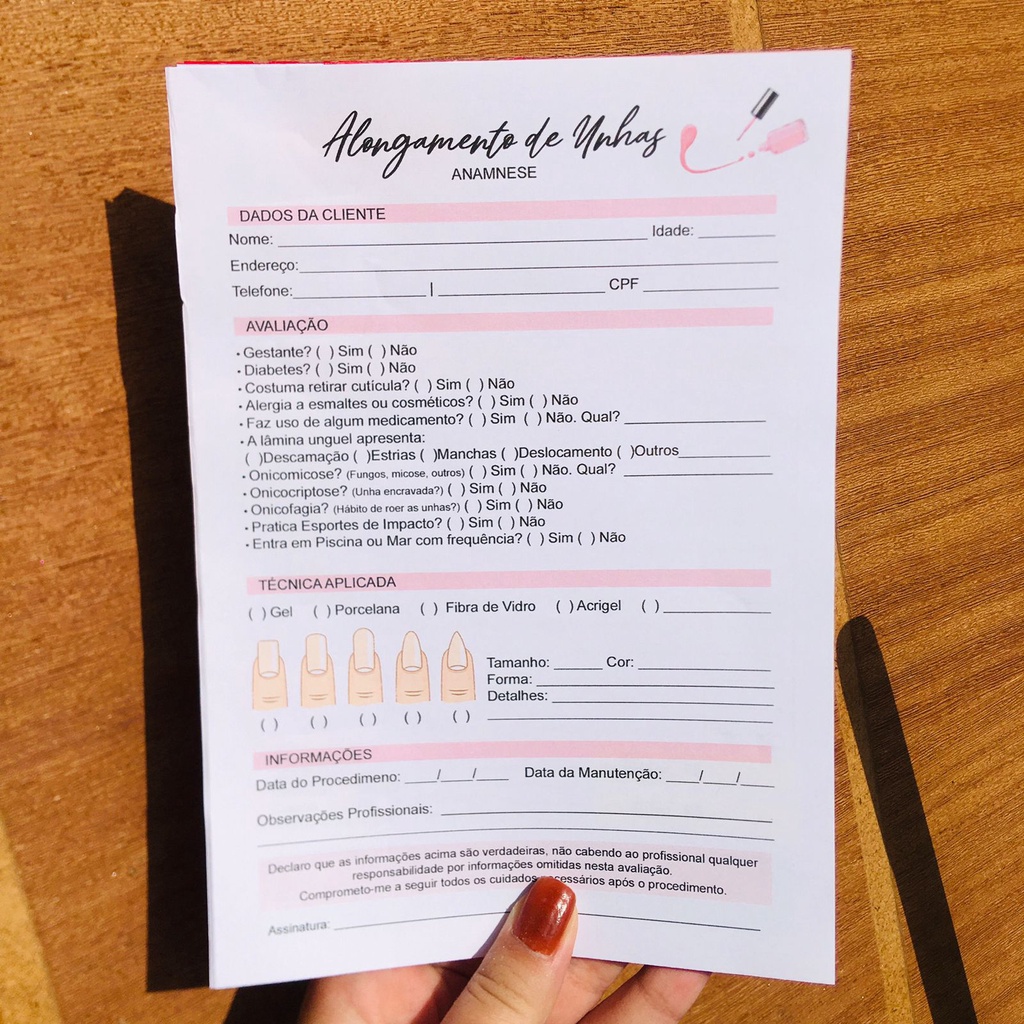 Alongamento de Unhas
ANAMNESE
DADOS DA CLIENTE
Nome: Idade:
Endereço:
Telefone: | CPF
AVALIAÇÃO
• Gestante? ( ) Sim ( ) Não
• Diabetes? ( ) Sim ( ) Não
• Costuma retirar cutícula? ( ) Sim ( ) Não
• Alergia a esmaltes ou cosméticos? ( ) Sim ( ) Não
• Faz uso de algum medicamento? ( ) Sim ( ) Não. Qual?
• A lâmina unguel apresenta:
( )Descamação ( )Estrias ( )Manchas ( )Deslocamento ( )Outros
• Onicomicose? (Fungos, micose, outros) ( ) Sim ( ) Não. Qual?
• Onicocriptose? (Unha encravada?) ( ) Sim ( ) Não
• Onicofagia? (Hábito de roer as unhas?) ( ) Sim ( ) Não
• Pratica Esportes de Impacto? ( ) Sim ( ) Não
• Entra em Piscina ou Mar com frequência? ( ) Sim ( ) Não
TÉCNICA APLICADA
( ) Gel ( ) Porcelana ( ) Fibra de Vidro ( ) Acrigel ( )
Tamanho: Cor:
Forma:
Detalhes:
( ) ( ) ( ) ( ) ( )
INFORMAÇÕES
Data do Procedimeno: / / Data da Manutenção: / /
Observações Profissionais:
Declaro que as informações acima são verdadeiras, não cabendo ao profissional qualquer
responsabilidade por informações omitidas nesta avaliação.
Comprometo-me a seguir todos os cuidados necessários após o procedimento.
Assinatura: